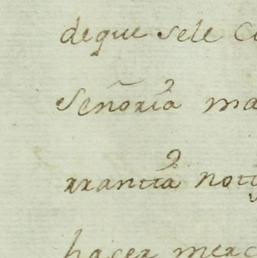 deque sele c
Señoria ma
rrantia noti
hacer merc